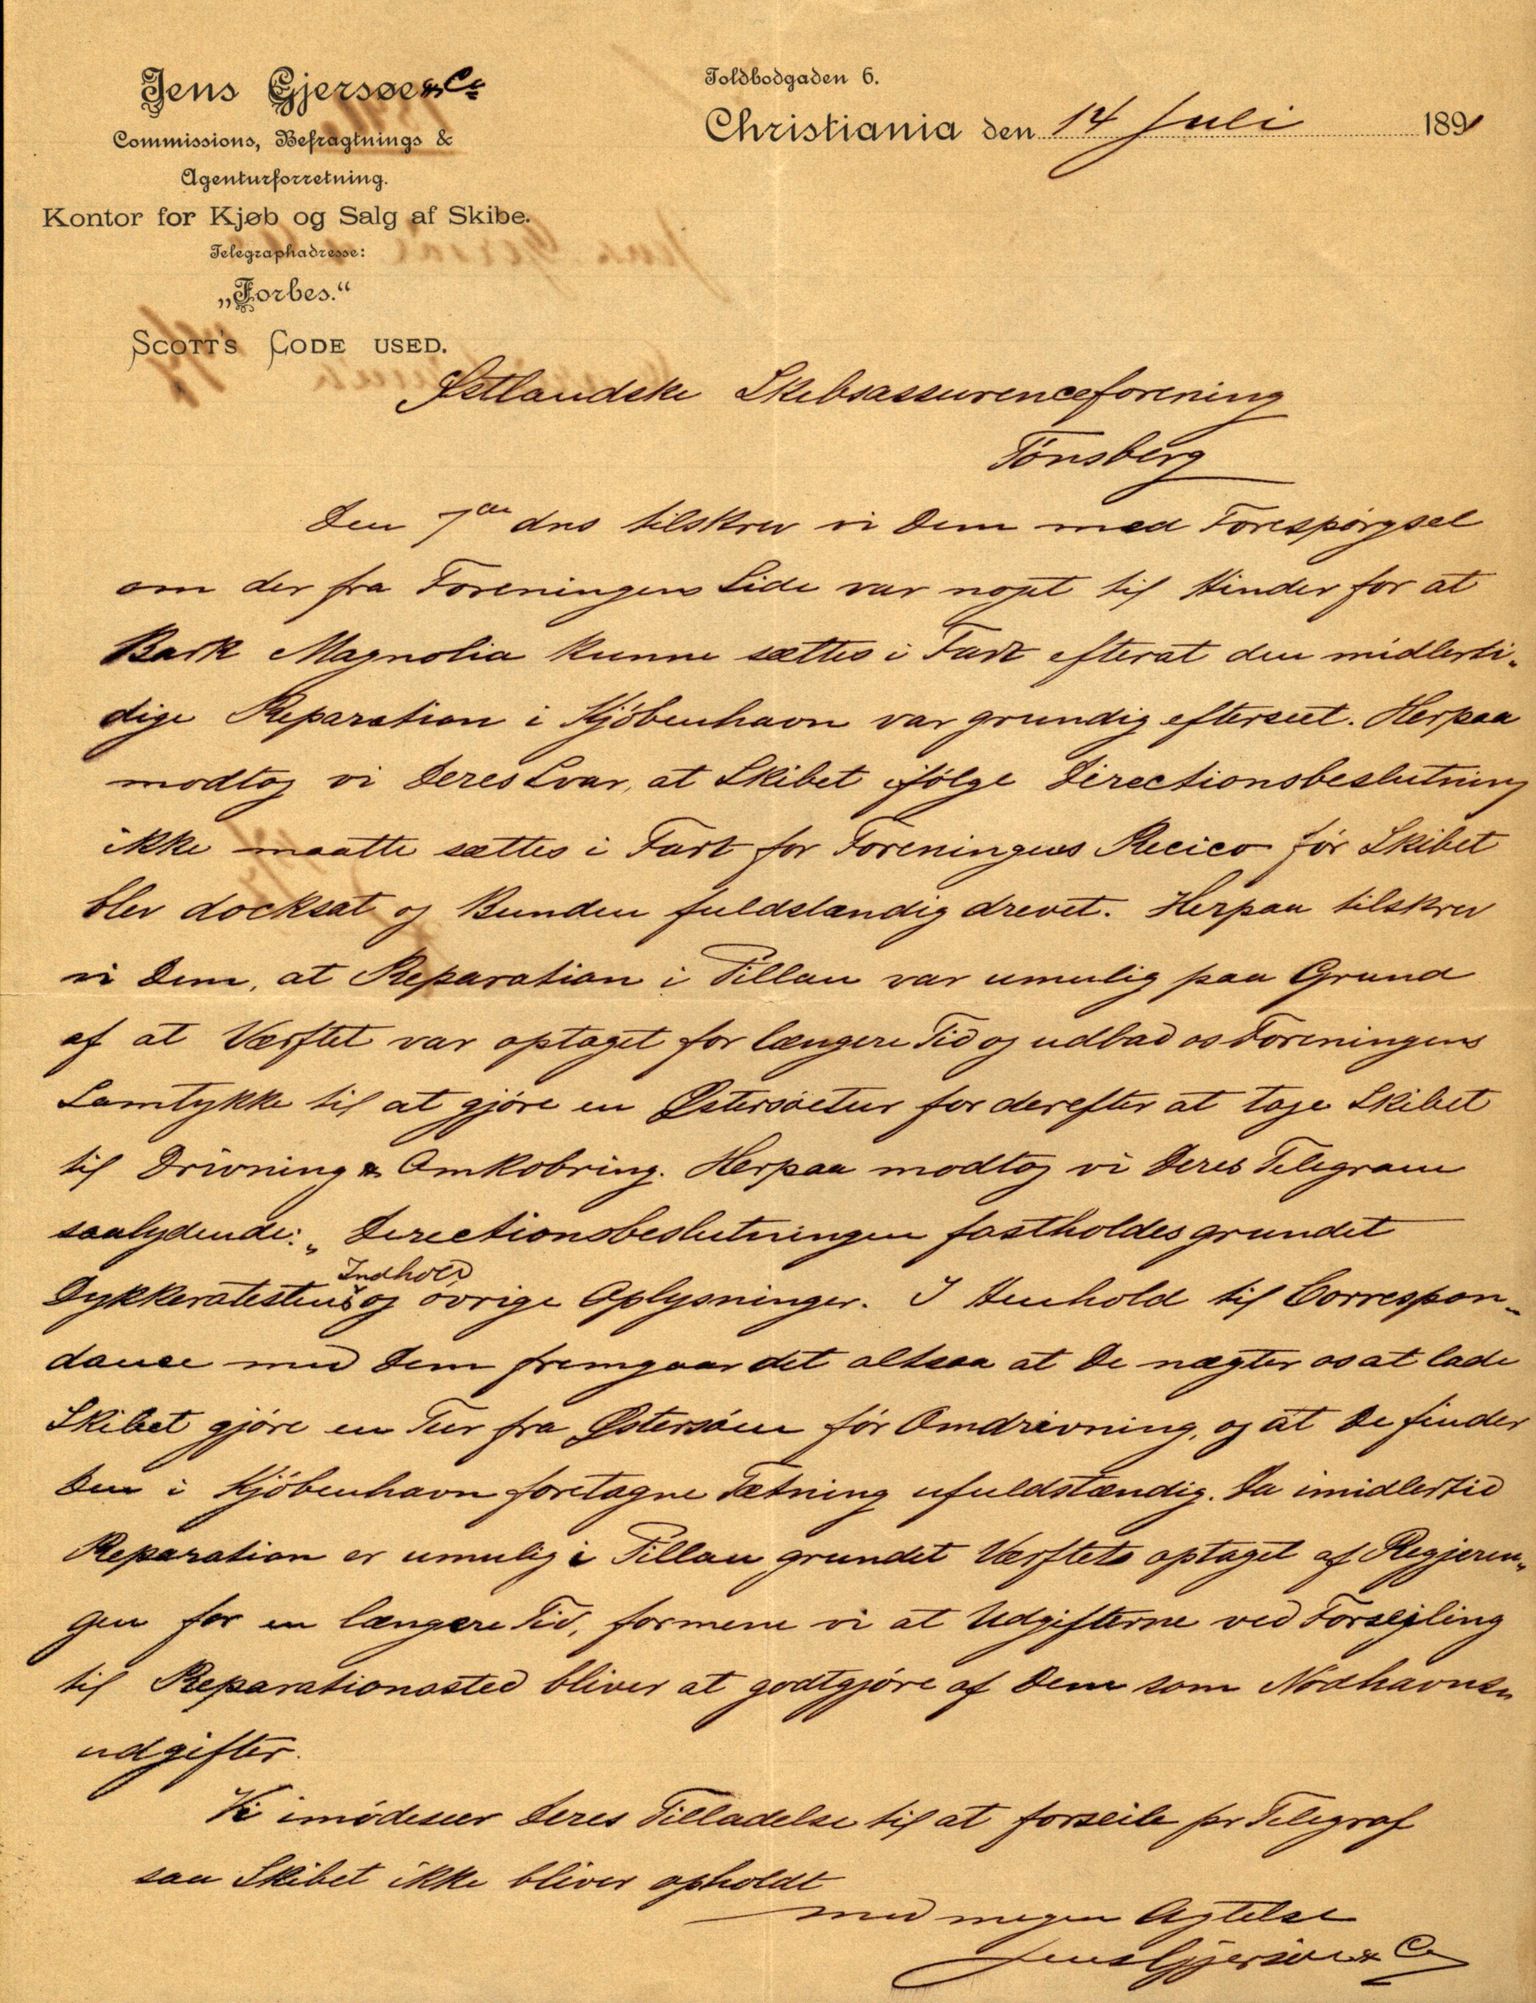 Jens Gjersøe & Co
Commissions, Befragtnings &
Agenturforretning.
Kontor for Kjøb og Salg af Skibe.
Telegraphadresse:
„Forbes.“
SCOTT'S CODE USED.
Toldbodgaden 6.
Christiania den 14 Juli 1891
Østlandske Skibsassuranceforening
Tønsberg
Den 7de ds tilskrev vi Dem med Forespørgsel
om der fra Foreningens Side var noget til Hinder for at
Bark Magnolia kunne sættes i Fart efterat den midlerti-
dige Reparation i Kjøbenhavn var grundig efterseet. Herpaa
modtog vi Deres Svar, at Skibet ifølge Directionsbeslutning
ikke maatte sættes i Fart for Foreningens Recico før Skibet
blev docksat og Bunden fuldstændig drevet. Herpaa tilskrev
vi Dem, at Reparation i Pillau var umulig paa Grund
af at Værftet var optaget for længere Tid og udbad os Foreningens
Samtykke til at gjøre en Østersøetur for derefter at tage Skibet
til Drivning & Omkobring. Herpaa modtog vi Deres Telegram
saalydende: „Directionsbeslutningen fastholdes grundet
Dykkeratestens Indhold og øvrige Oplysninger. I Henhold til Correspon-
dance med Dem fremgaar det altsaa at De nægter os at lade
Skibet gjøre en Tur fra Østersøen før Omdrivning, og at De finder
den i Kjøbenhavn foretagne Tætning ufuldstændig. Da imidlertid
Reparation er umulig i Pillau grundet Værftets optaget af Regjerin-
gen for en længere Tid, formene vi at Udgifterne ved Forsejling
til Reparationssted bliver at godtgjøre af Dem som Nødhavns-
udgifter.
Vi imødeseer Deres Tilladelse til at forseile pr Telegraf
saa Skibet ikke bliver opholdt
med megen Agtelse
Jens Gjersøe & Co